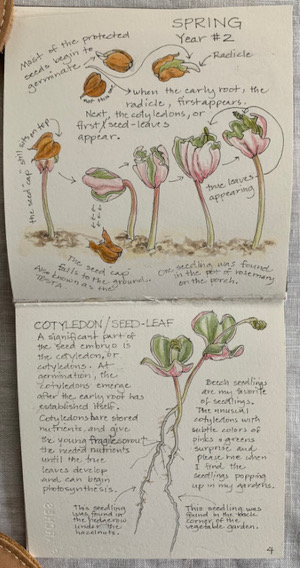 SPRING
Year #2
Most of the protected
seeds begin to
germinate
Radicle
not this
*when the early root, the
radicle, first appears.
Next, the cotyledons, or
first/seed-leaves
appear.
the seed cap - still sits on top
true leaves-
appearing
The seed cap
falls to the ground...
Also known as the
Testa
One seedling was found
in the pot of rosemary
on the porch.
COTYLEDON/SEED-LEAF
A significant part of
the seed embryo is
the cotyledon, or
cotyledons. At
germination, the
cotyledons emerge
after the early root has
established itself.
Cotyledons are stored
nutrients, and give
the young fragile sprout
the needed nutrients
until the true
leaves develop
and can begin
photosynthesis.
Beech seedlings
are my favorite
of seedlings.
The unusual
cotyledons with
subtle colors of
pinks & greens
surprise and
please me when
I find the
seedlings popping
up in my gardens.
This seedling
was found in
the hedgerow
under the
hazelnuts.
This seedling was
found in the back
corner of the
vegetable garden.
4